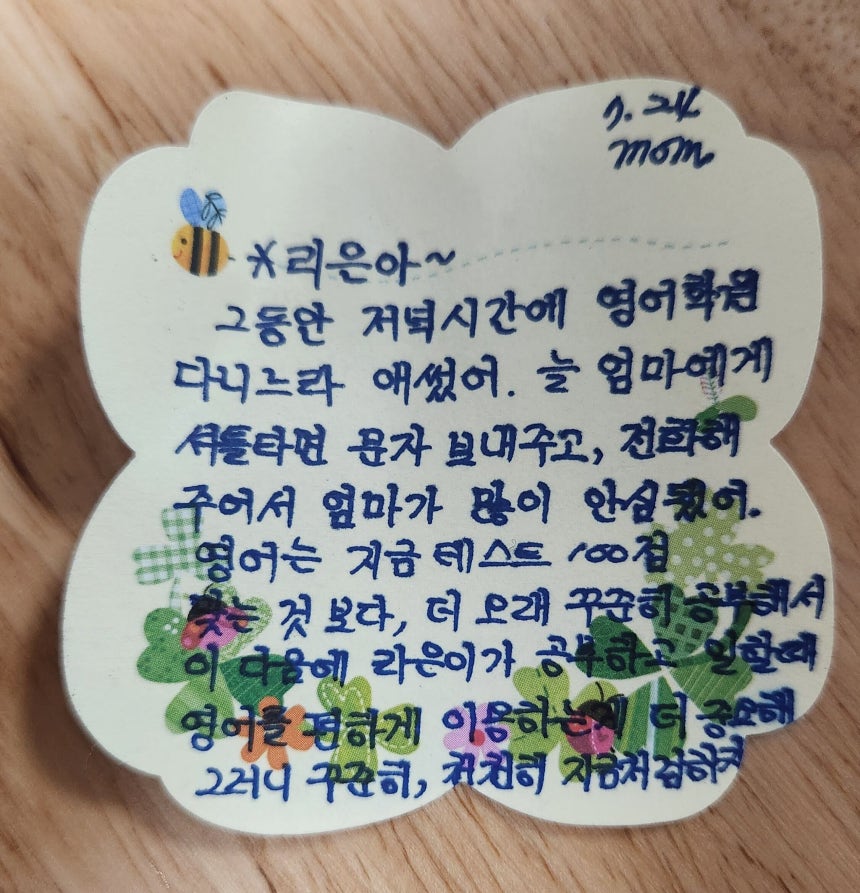 7. 24
mom.
* 리은아~
그동안 저녁시간에 영어학원
다니느라 애썼어. 늘 엄마에게
셔틀타면 문자 보내주고, 전화해
주어서 엄마가 많이 안심됐어.
영어는 지금 테스트 100점
맞는 것 보다, 더 오래 꾸준히 공부해서
이 다음에 라은이가 공부하고 일할때
영어를 편하게 이용하는게 더 중요해
그러니 꾸준히, 천천히 지금처럼하자